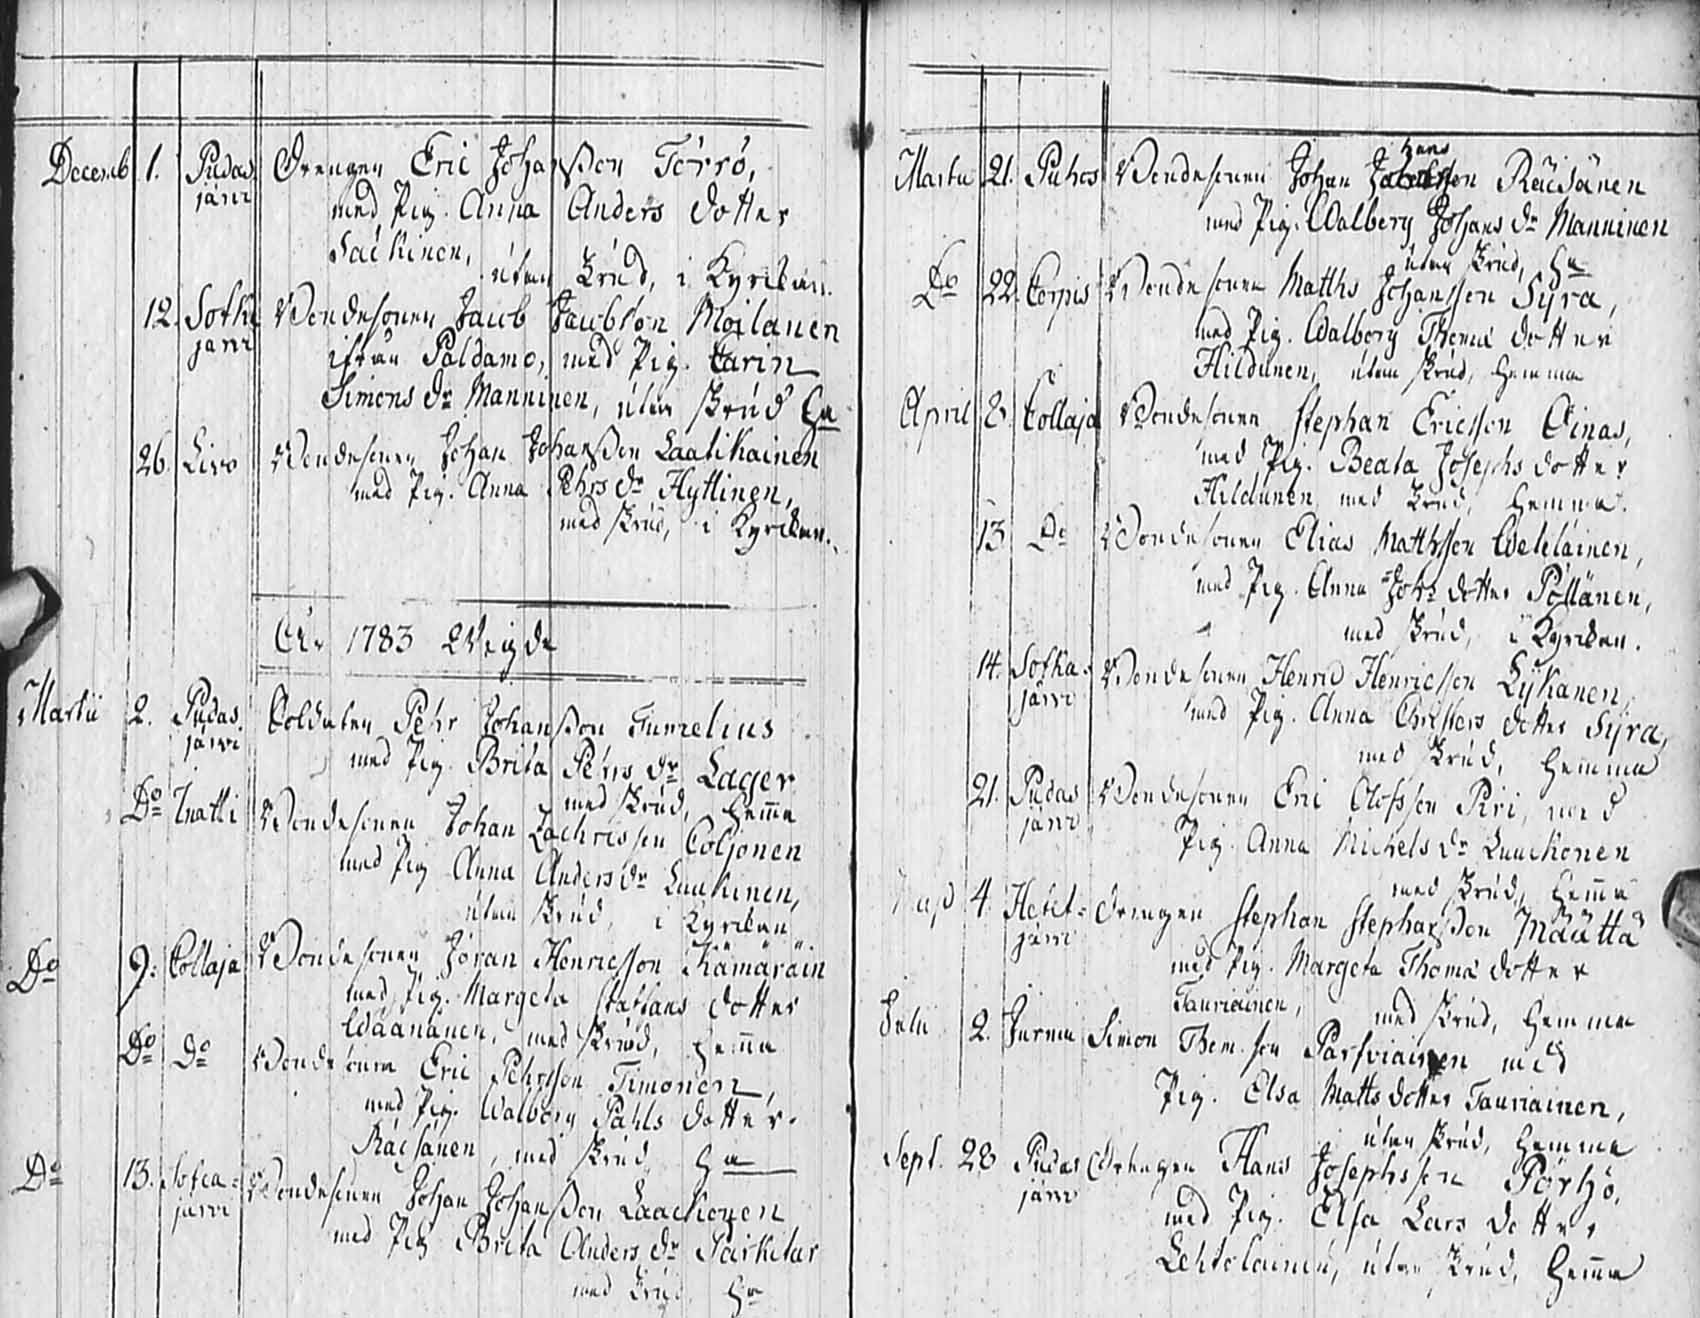 Decemb 1. Pudas Drengen Eric Johansson Törrö,
järvi med Pig. Anna Anders dotter
Säckinen,
utan Skrud, i Kyrckan.
12. Sotka Bondesonen Jacob Jacobsson Moilanen
järvi ifrån Paldamo, med Pig. Carin
Simons dr Manninen, utan skrud He
26. Livo Bondesonen Johan Johansson Laatikainen
med Pig. Anna Pehrs dr Hyttinen,
med skrud, i Kyrckan.
År 1783 Wigde
Martii 2. Pudas Soldaten Pehr Johansson Tumelius
järvi med Pig. Brita Pehrs dr Lager
med Skrud, hem̄a
Do Inatti Bondesonen Johan Zachrisson Coljonen
med Pig Anna Anders dr Laukinen,
utan Skrud, i Kyrckan
Do 9. Collaja Bondesonen Jöran Henricsson Kämäräin
med Pig. Margeta Staffans dotter
Wäänänen, med Skrud, hem̄a
Do Do Bondesonen Eric Pehrsson Timonen,
med Pig. Walborg Påhls dotter
Räisänen, med skrud, He
Do 13. Sotca- Bondesonen Johan Johansson Laackonen
järvi med Pig Brita Anders dr Parkitar
med Skrud He
Martii 21. Puhos Bondesonen Johan Johansson Räisänen
hans
med Pig. Walborg Johans dr Manninen
utan Skrud, He
Do 22. Corpis Bondesonen Matths Johansson Syra,
med Pig. Walborg Thomæ dotter
Hildunen, utan skrud, hemma
April 8. Collaja Bondesonen Stephan Ericsson Oinas,
med Pig. Beata Josephs dotter
Hildunen med Skrud, hemma.
13 Do Bondesonen Elias Mattsson Wäläläinen,
med Pig. Anna Joh: dotter Pöllänen,
med Skrud, i Kyrckan.
14. Sotka- Bondesonen Henric Henricsson Lykanen,
järvi med Pig. Anna Christers dotter Syra,
med Skrud, hemma
21. Pudas Bondesonen Eric Olofsson Piri, med
järvi Pig. Anna Michels dr Luuckonen
med Skrud, hem̄a
4. Hetet- Drengen Stephan Stephansson Määttä
järvi med Pig. Margeta Thomæ dotter
Tauriainen, med Skrud, hemma
Julii 2. Jurmu Simon Thom. son Parsviainen med
Pig. Elsa Matts dotter Tauriainen,
utan skrud, hemma
Sept. 28 Pudas Drengen Hans Josephsson Pörhö,
järvi med Pig. Elsa Lars dotter
Lehtolainen, utan Skrud, hem̄a